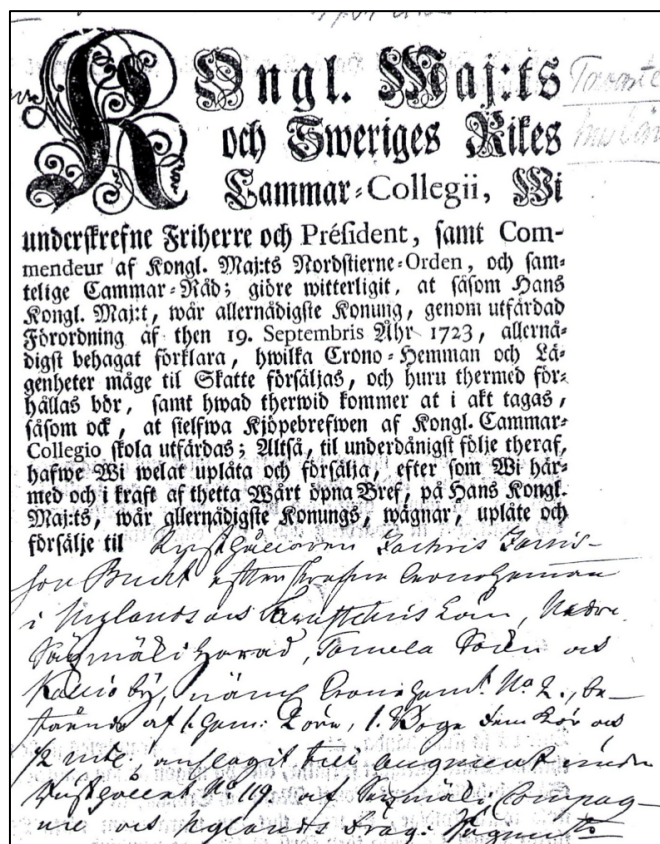 KOngl. Maj:ts
och Sweriges Rikes
Cammar-Collegii, Wi
underskrefne Friherre och Président, samt Com-
mendeur af Kongl. Maj:ts Nordstierne-Orden, och sam-
telige Cammar-Råd; giöre witterligit, at såsom Hans
Kongl. Maj:t, wår allernådigste Konung, genom utfärdad
Förordning af then 19. Septembris Åhr 1723, allernå-
digst behagat förklara, hwilka Crono-Hemman och Lä-
genheter måge til Skatte försäljas, och huru thermed för-
hållas bör, samt hwad therwid kommer at i akt tagas,
såsom ock, at sielfwa Kjöpebrefwen af Kongl. Cammar-
Collegio skola utfärdas; Altså, til underdånigst följe theraf,
hafwe Wi welat uplåta och försälja, efter som Wi här-
med och i kraft af thetta Wårt öpna Bref, på Hans Kongl.
Maj:ts, wår allernådigste Konungs, wägnar, uplåte och
försälje til Rusthållaren Zachris
Crono Heman
i Nylands och Län, Nedre
Härad, Sokn och
by, nämL Crono Hem.t No 2., be-
stående af 1. hem:
till augment under
Rusthållet No 119. af Compag-
nie och Nylands Drag: Regemente